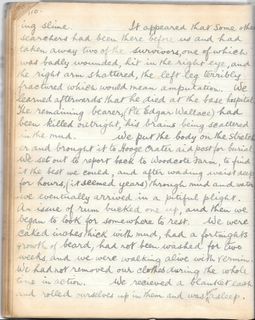 10.
ing slime. It appeared that some other
searchers had been there before us and had
taken away two of the survivors, one of which
was badly wounded, hit in the right eye, and
the right arm shattered, the left leg terribly
fractured which would mean amputation. We
learned afterwards that he died at the base hospital
The remaining bearer, (Pte Edgar Wallace) had
been killed outright, his brains being scattered
in the mud. We put the body on the stretch
er and brought it to Hooge Crater aid post for burial
We set out to report back to Woodcote Farm, to find
it the best we could, and after wading waist deep
for hours, (it seemed years) through mud and water
we eventually arrived in a pitiful plight.
An issue of rum bucked me up, and then we
began to look for somewhere to rest. We were
caked inches thick with mud, had a fortnights
growth of beard, had not been washed for two
weeks and we were walking alive with vermin
We had not removed our clothes during the whole
time in action. We recieved a blanket each
and rolled ourselves up in them and was asleep.